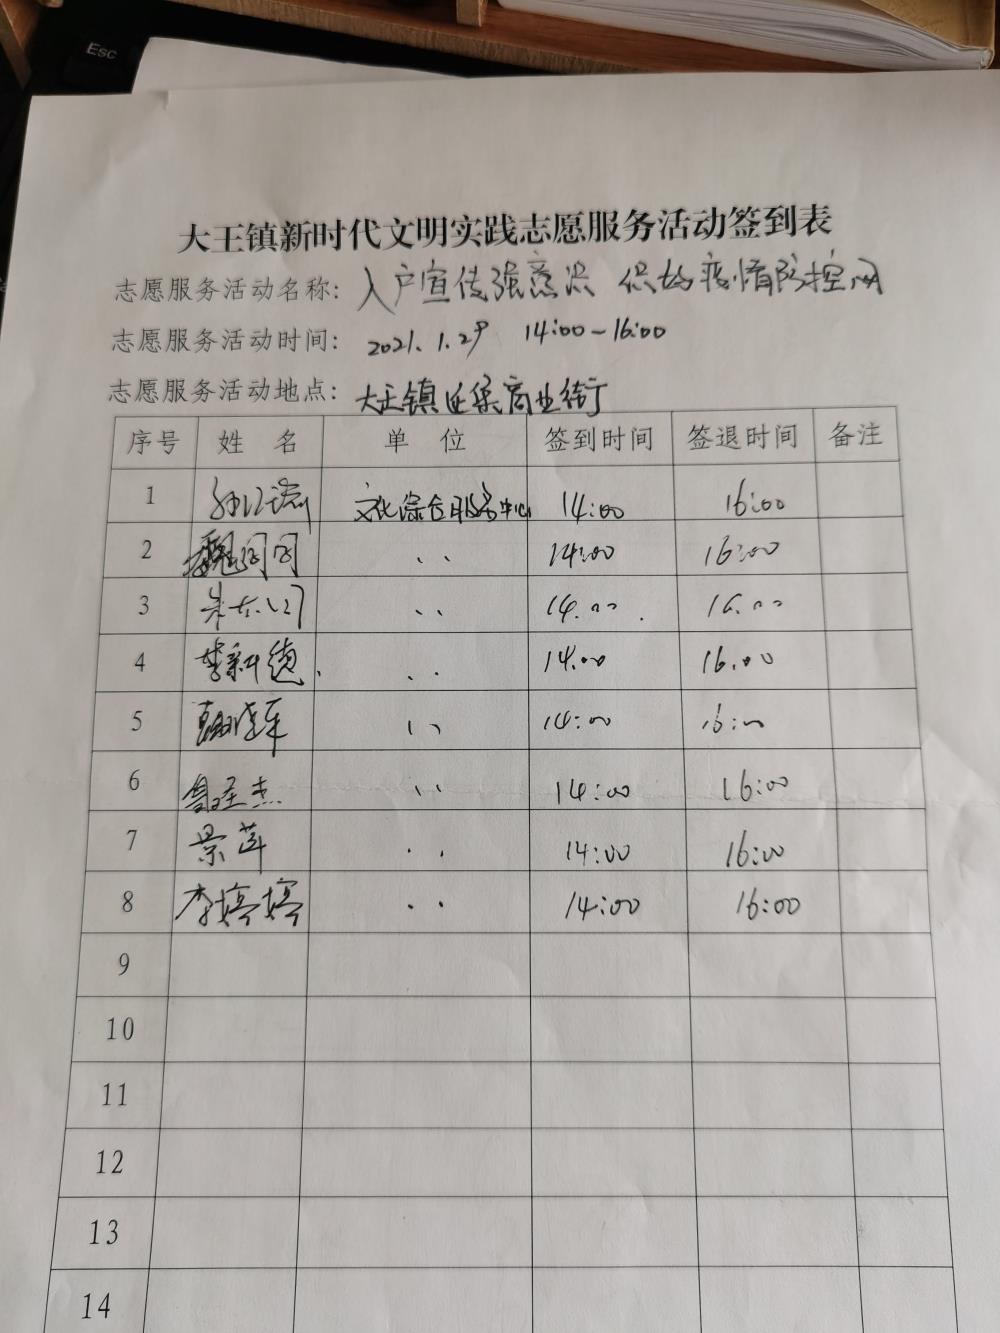 Esc
大王镇新时代文明实践志愿服务活动签到表
志愿服务活动名称: 入户宣传强意识 织好疫情防控网
志愿服务活动时间: 2021.1.29 14:00-16:00
志愿服务活动地点: 大王镇延集商业街
序号 姓 名 单 位 签到时间 签退时间 备注
1 文化综合服务中心 14:00 16:00
2 魏闪闪 .. 14:00 16:00
3 .. 14.00 16.00
4 李新德 .. 14.00 16.00
5 .. 14:00 16:00
6 .. 14:00 16:00
7 景莲 .. 14:00 16:00
8 李婷婷 .. 14:00 16:00
9
10
11
12
13
14